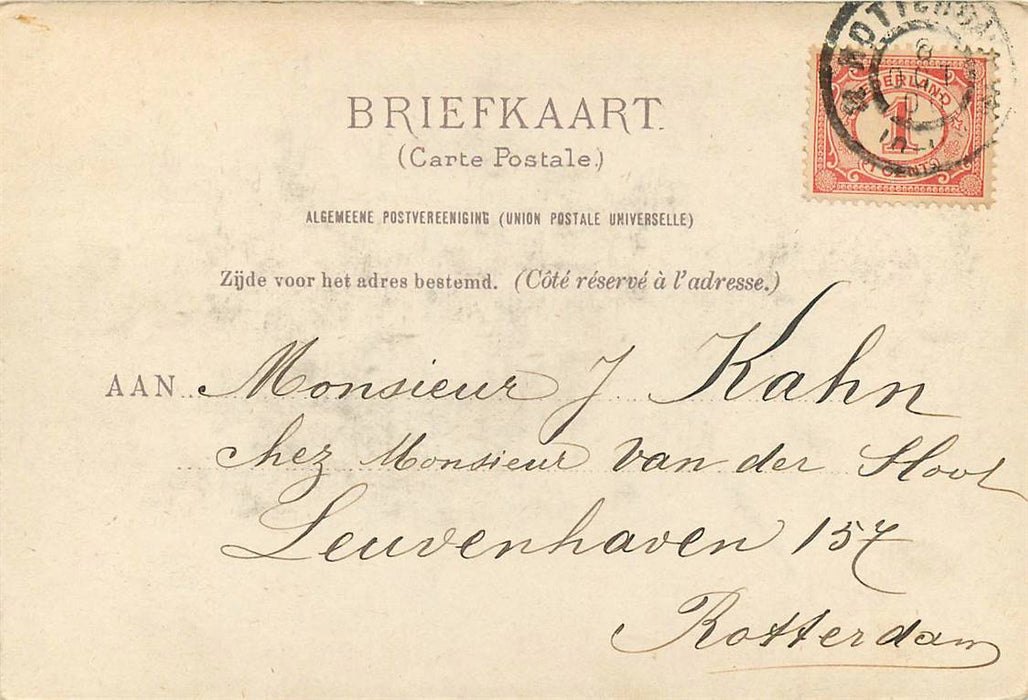 BRIEFKAART.
(Carte Postale.)
ALGEMEENE POSTVEREENIGING (UNION POSTALE UNIVERSELLE)
Zijde voor het adres bestemd. (Côté réservé à l'adresse.)
AAN Monsieur J Kahn
chez Monsieur van der Sloot
Leuvenhaven 157
Rotterdam
NEDERLAND
1
1 CENT